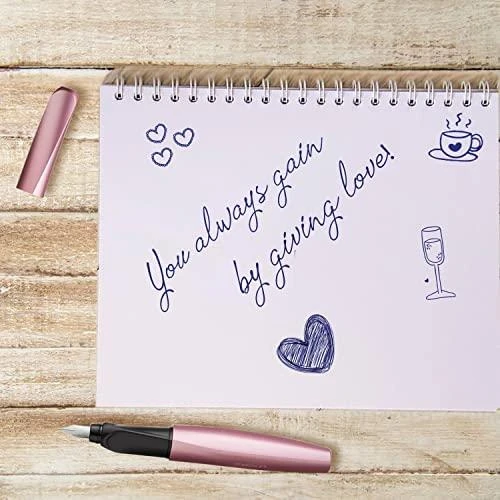 You always gain
by giving love!